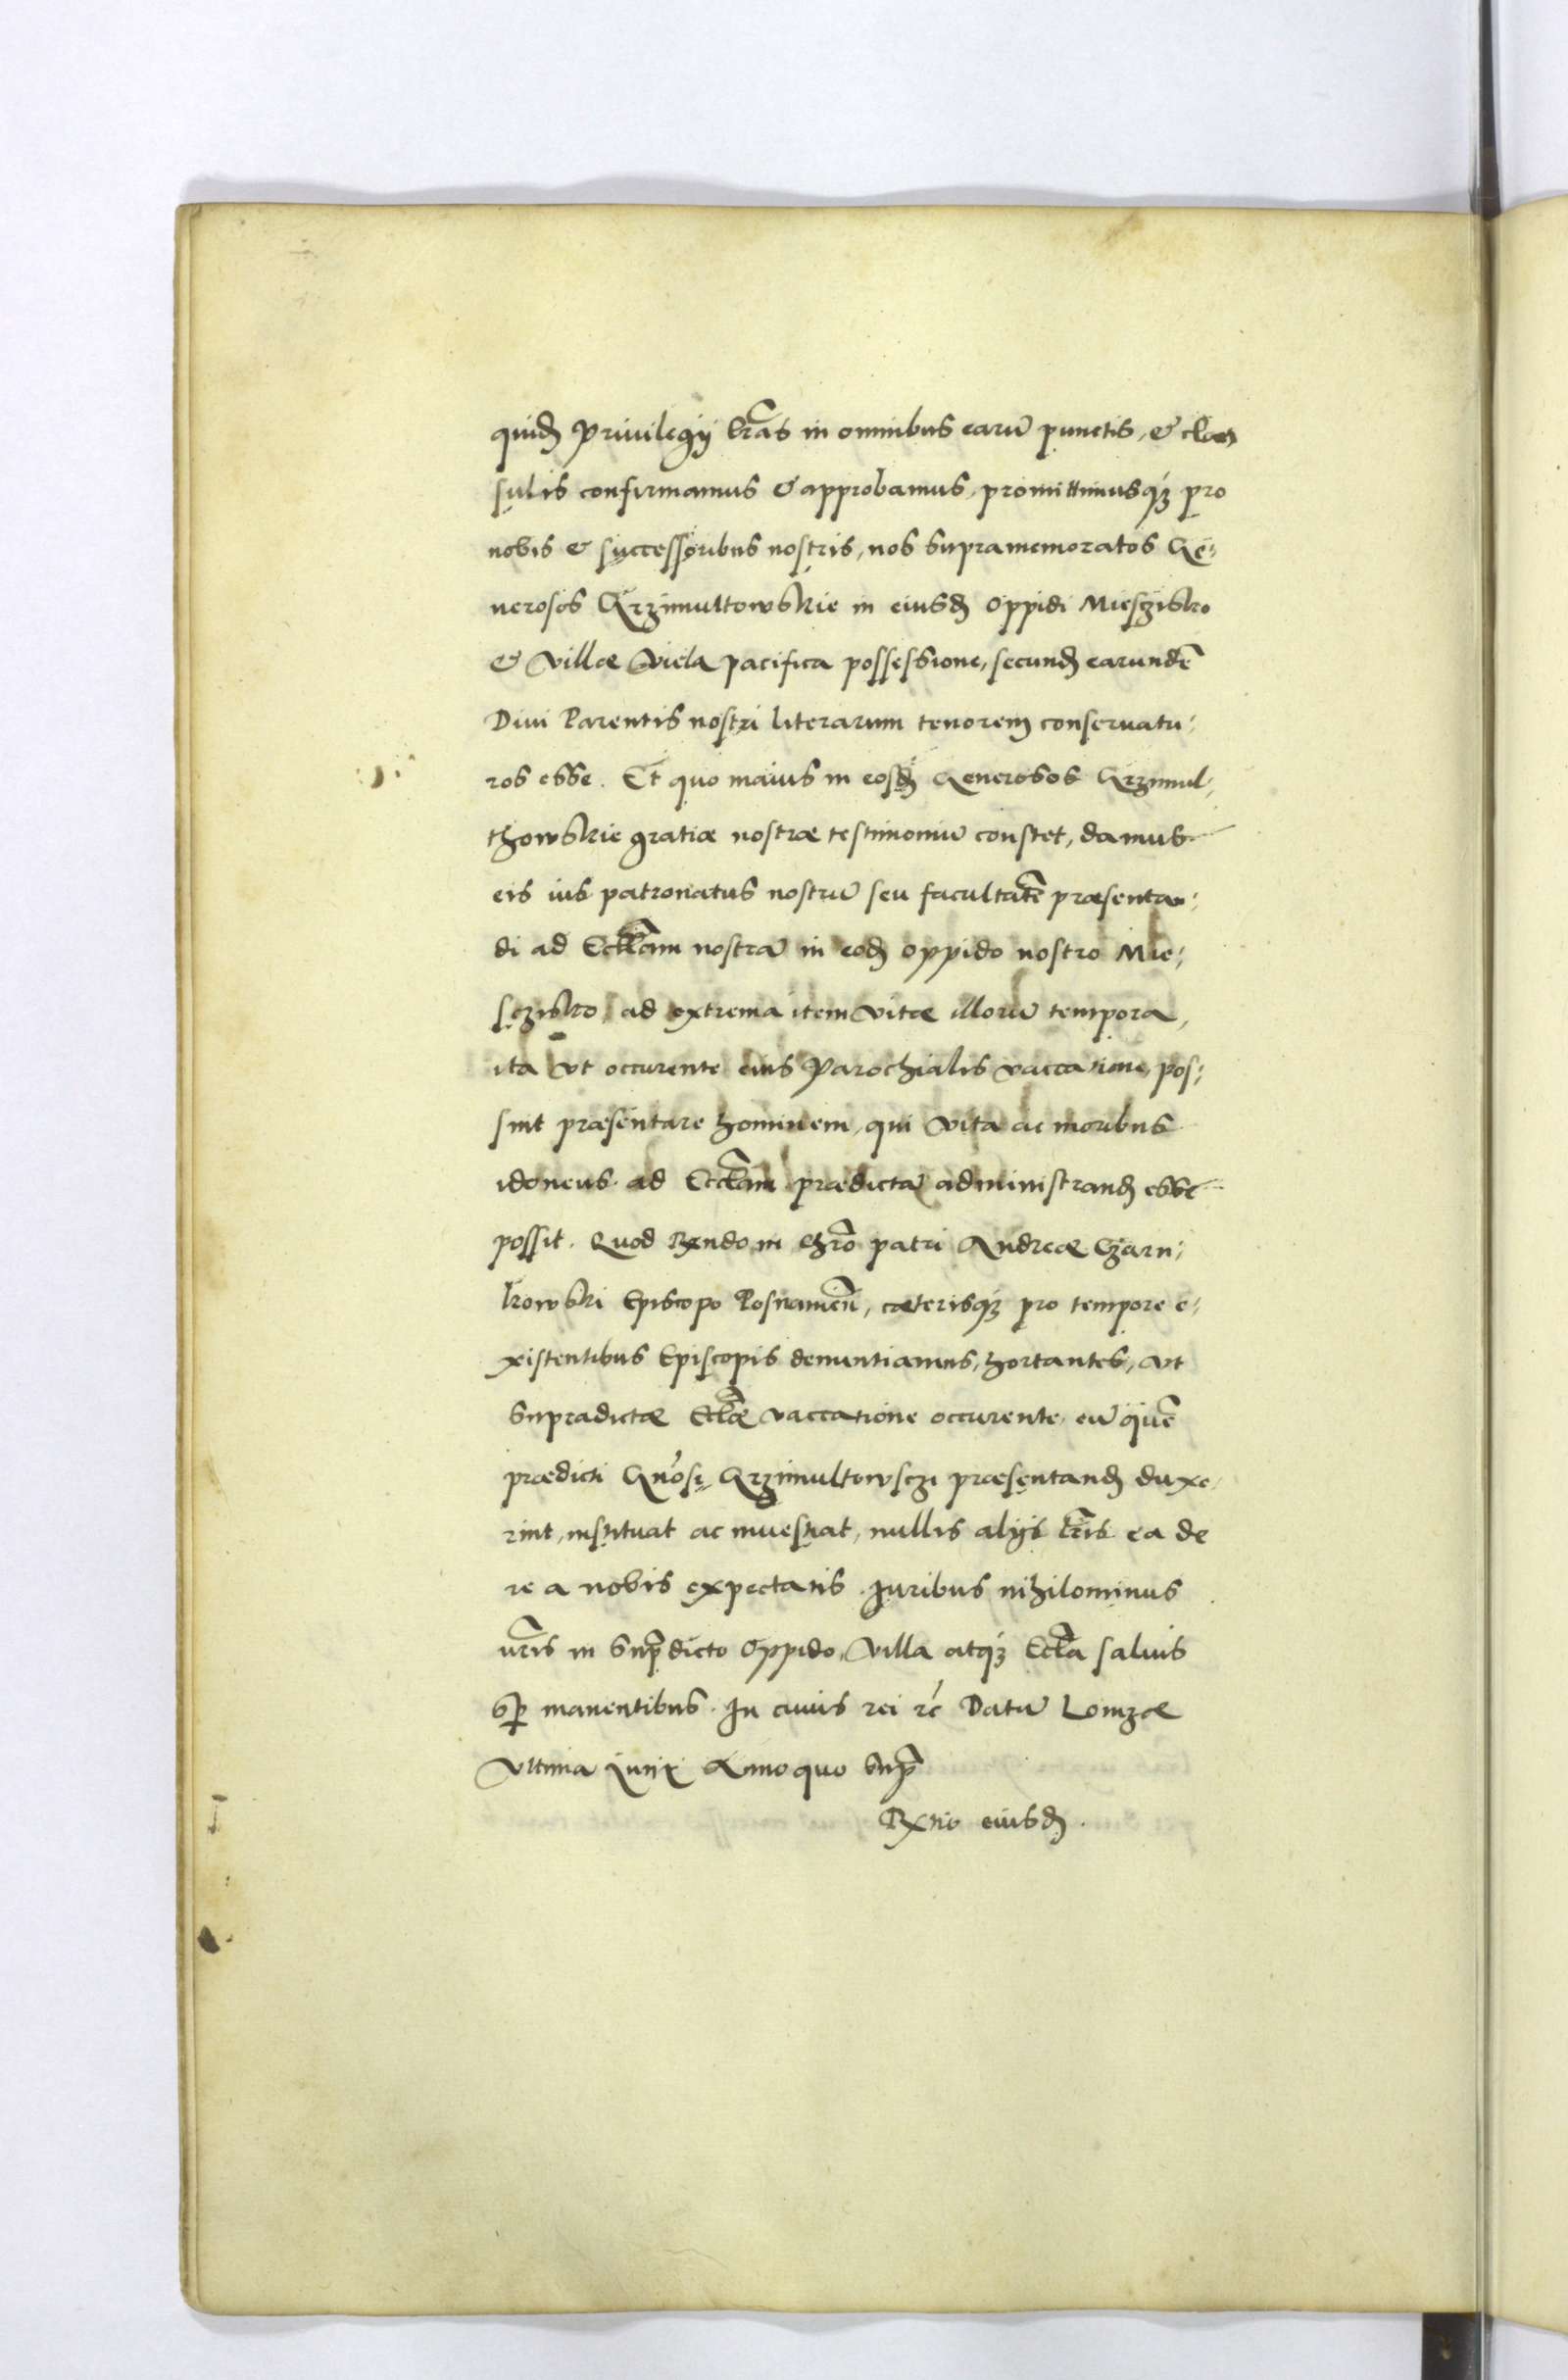 quid(em) Privilegij l(ite)ras in omnibus earu(m) punctis, & clau
sulis confirmamus & approbamus, promittimusq(ue) pro
nobis & successoribus nostris, nos supramemoratos Ge:
nerosos Krzimultowskie in eiusd(em) Oppidi Miesczisko
& Villæ Wiela pacifica possessione, secund(um) earunde(m)
Divi Parentis nostri literarum tenorem conservatu:
ros esse. Et quo maius in eosd(em) Generosos Krzimul:
thowskie gratiæ nostræ testimoniu(m) constet, damus
eis ius patronatus nostru(m) seu facultate(m) præsentan:
di ad Eccl(esi)am nostra(m) in eod(em) oppido nostro Mie:
sczisko, ad extrema item vitæ illoru(m) tempora,
ita vt occurente eius Parochialis vaccatione, pos:
sint præsentare hominem, qui vita ac moribus
idoneus ad Eccl(esi)am prædicta(m) administrand(am) esse
possit. Quod R(evere)ndo in Chr(ist)o patri Andreæ Czarn:
kowski Episcopo Posnanien(si), cæterisq(ue) pro tempore e:
xistentibus Episcopis denuntiamus, hortantes, vt
supradictæ Eccl(esi)æ vaccatione occurente, eu(m) que(m)
prædicti G(e)n(er)osi Krzimultowsczi præsentand(um) duxe
rint, instituat ac investiat, nullis alijs l(ite)ris ea de
re a nobis expectatis. Iuribus nihilominus
n(ost)ris in sup(ra)dicto Oppido, Villa atq(ue) Eccl(esi)a salvis
s(em)p(er) manentibus. In cuius rei &c Datu(m) Lomzæ
Vltima Junij Anno quo sup(ra)
R(ela)tio eiusd(em).